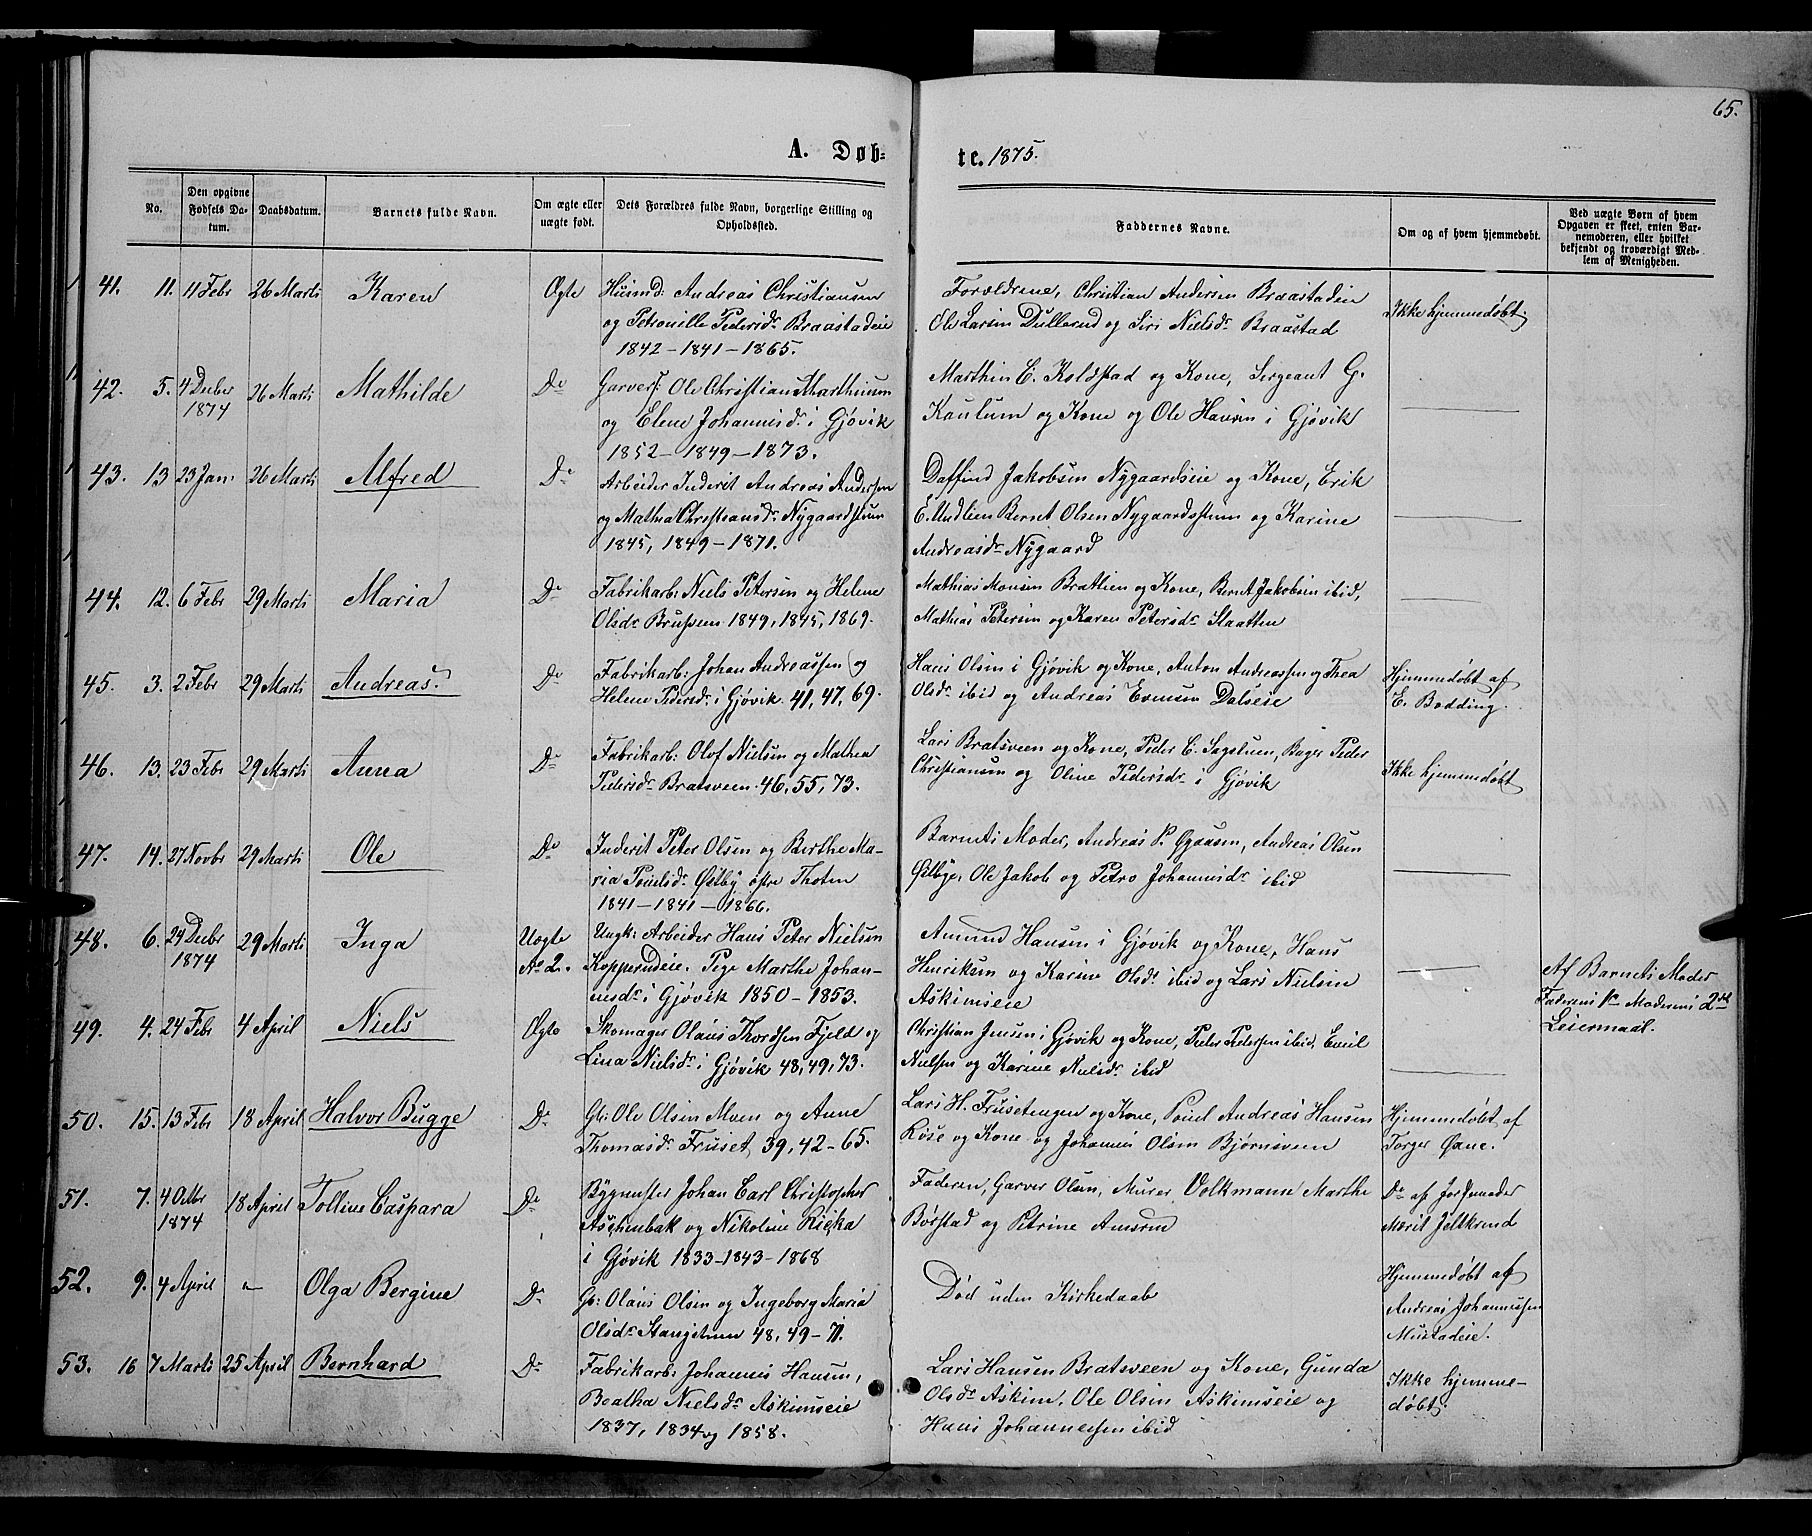 65.
A. Døb-
te. 1875.
No.
Den opgivne Fødsels Da-tum.
Daabsdatum.
Barnets fulde Navn.
Om ægte eller uægte født.
Dets Forældres fulde Navn, borgerlige Stilling og Opholdssted.
Faddernes Navne.
Om og af hvem hjemmedøbt.
Ved uægte Børn af hvem Opgaven er skeet, enten Bar-nemoderen, eller hvilket bekjendt og troværdigt Med-lem af Menigheden.
41. 11. 11 Febr 26 Marts Karen Ægte
Husmd: Andreas Christiansen
og Petronille Pedersdr Braastadeie
1842 – 1841 – 1865.
Forældrene, Christian Andersen Braastadeie
Ole Larsen Dullerud og Siri Nielsdr Braastad
Ikke hjemmedøbt.
42. 5. 4 Decber 1874 26 Marts Mathilde Do
Garvers. Ole Christian Marthinsen
og Elene Johannesdr i Gjøvik
1852 – 1849 – 1873.
Marthin E. Koldstad og Kone, Sergeant G.
Kaulum og Kone og Ole Hansen i Gjøvik
43. 13 23 Jan. 26 Marts Alfred Do
Arbeider Inderst Andreas Andersen
og Mathea Christiansdr Nygaardstuen
1845, 1849 – 1871.
Daffind Jakobsen Nygaardseie og Kone, Erik
E. Undlien Bernt Olsen Nygaardsstuen og Karine
Andreasdr Nygaard
44. 12. 6 Febr 29 Marts Maria Do
Fabrikarb: Niels Petersen og Helene
Olsdr Brusveen 1849, 1845, 1869.
Mathias Monsen Bratlien og Kone, Bernt Jakobsen ibid,
Mathias Petersen og Karen Petersdr Slaatten
45. 3. 2 Febr 29 Marts Andreas. Do
Fabrikarb: Johan Andreassen og
Helene Pedersd: i Gjøvik 41, 47, 69.
Hans Olsen i Gjøvik og Kone, Anton Andreassen og Thea
Olsdr ibid og Andreas Evensen Dalseie
Hjemmedøbt af
E. Bødding.
46. 13. 23 Febr 29 Marts Anna Do
Fabrikarb: Olof Nielsen og Mathea
Pedersdr Bratsveen 46, 55, 73.
Lars Bratsveen og Kone, Peder C. Sagstuen, Bager Peder
Christiansen og Oline Pedersdr i Gjøvik
Ikke hjemmedøbt
47. 14. 27 Novbr 29 Marts Ole Do
Inderst Peter Olsen og Berthe Ma-
ria Poulsdr Østby østre Thoten
1841 – 1841 – 1866.
Barnets Moder, Andreas P. Andreas Olsen
Østbye, Ole Jakob og Petro Johannesdr ibid
48. 6. 24 Decbr 1874 29 Marts Inga Uægte No 2.
Ungk: Arbeider Hans Peter Nielsen
Kopperudeie. Pige Marthe Johan-
nesdr i Gjøvik 1850 – 1853.
Amund Hansen i Gjøvik og Kone, Hans
Henriksen og Karine Olsdr ibid og Lars Nielsen
Askimseie
Af Barnets Moder
Faderens 1ste Moderens 2det
Leiermaal.
49. 4. 24 Febr 4 April Niels Ægte
Skomager Olaus Thordsen Fjeld og
Lina Nielsdr i Gjøvik 48, 49, 73.
Christian Jensen i Gjøvik og Kone, Peter Petersen ibid, Emil
Nielsen og Karine Nielsdr ibid
50. 15. 13 Febr 18 April Halvor Bugge Do
Gb: Ole Olsen Alven og Anne
Thomasdr Fruset 39, 42 – 65.
Lars H. Frusetengen og Kone, Poul Andreas Hansen
Røse og Kone og Johannes Olsen Bjørnsveen
Hjemmedøbt af
Torger Øane.
51. 7. 4 Octbr 1874 18 April Tolline Caspara Do
Bygmester Johan Carl Christopher
Aschenbak og Nikoline Ricka
i Gjøvik 1833 – 1843 – 1868
Faderen, Garver Olsen, Murer Volkmann Marthe
Børstad og Petrine Amsrud
Do af Jordemoder
Marit Jeltkrud
52. 9. 4 April " Olga Bergine Do
Gb: Olaus Olsen og Ingeborg Maria
Olsdr Stangstuen 48, 49 – 71.
Død uden Kirkedaab
Hjemmedøbt af
Andreas Johannessen
Mustadeie.
53. 16 7 Marts 25 April Bernhard Do
Fabrikarb: Johannes Hansen,
Beatha Nielsdr Askimseie
1837, 1834 og 1858.
Lars Hansen Bratsveen og Kone, Gunda
Olsdr Askim, Ole Olsen Askimseie og
Hans Johannessen ibid
Ikke hjemme-
døbt.